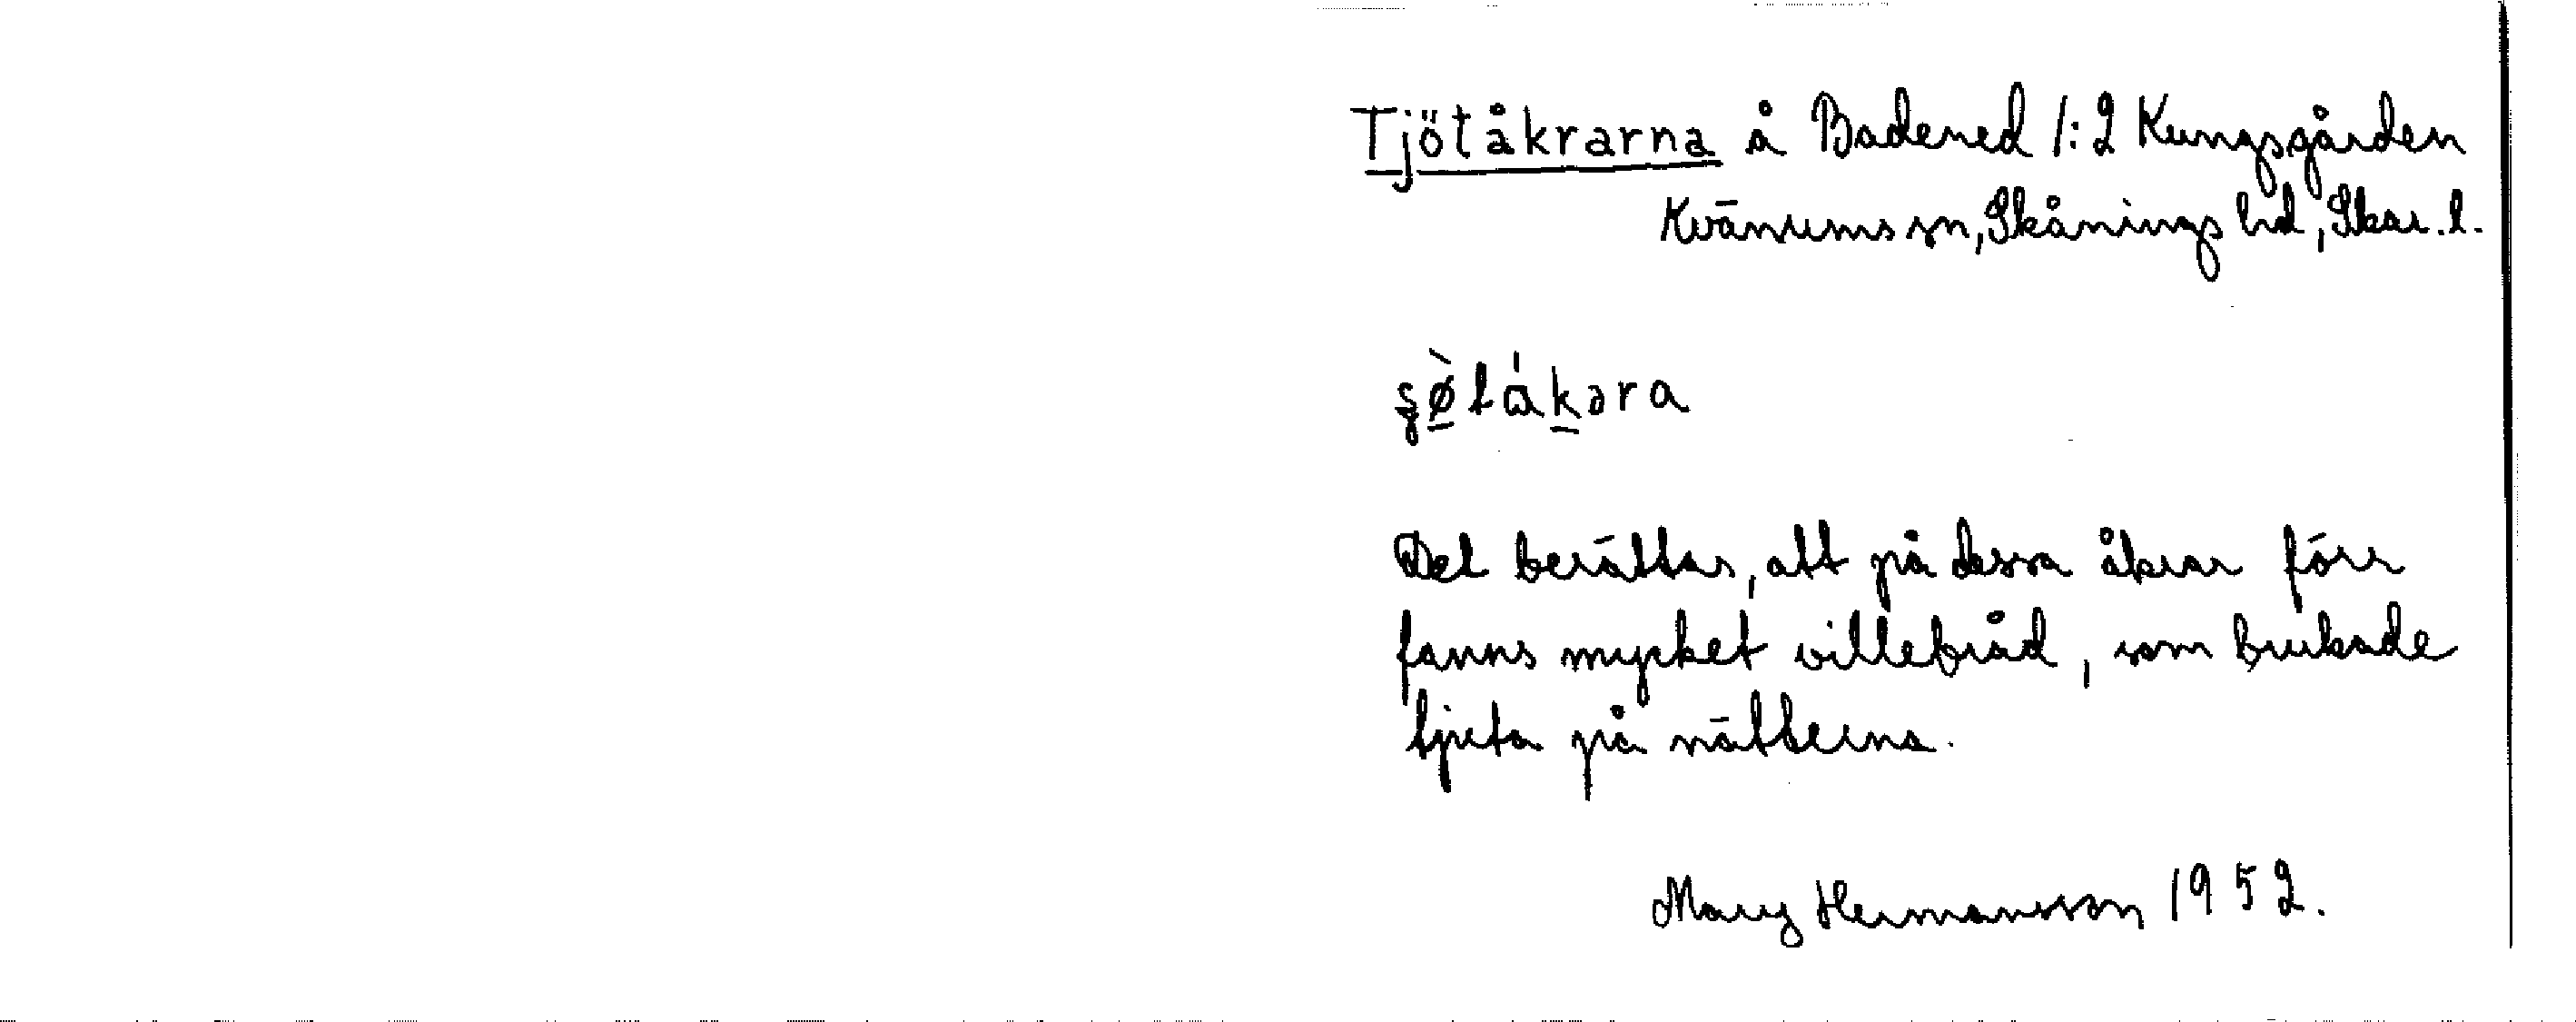 Tjötåkrarna å Badened 1:2 Kungsgården
Kvänums sn, Skånings hd, Skar. l.
Det berättas, att på dessa åkrar förr
fanns mycket villebråd, som brukade
tjuta på nätterna.
Mary Hermansson 1952.